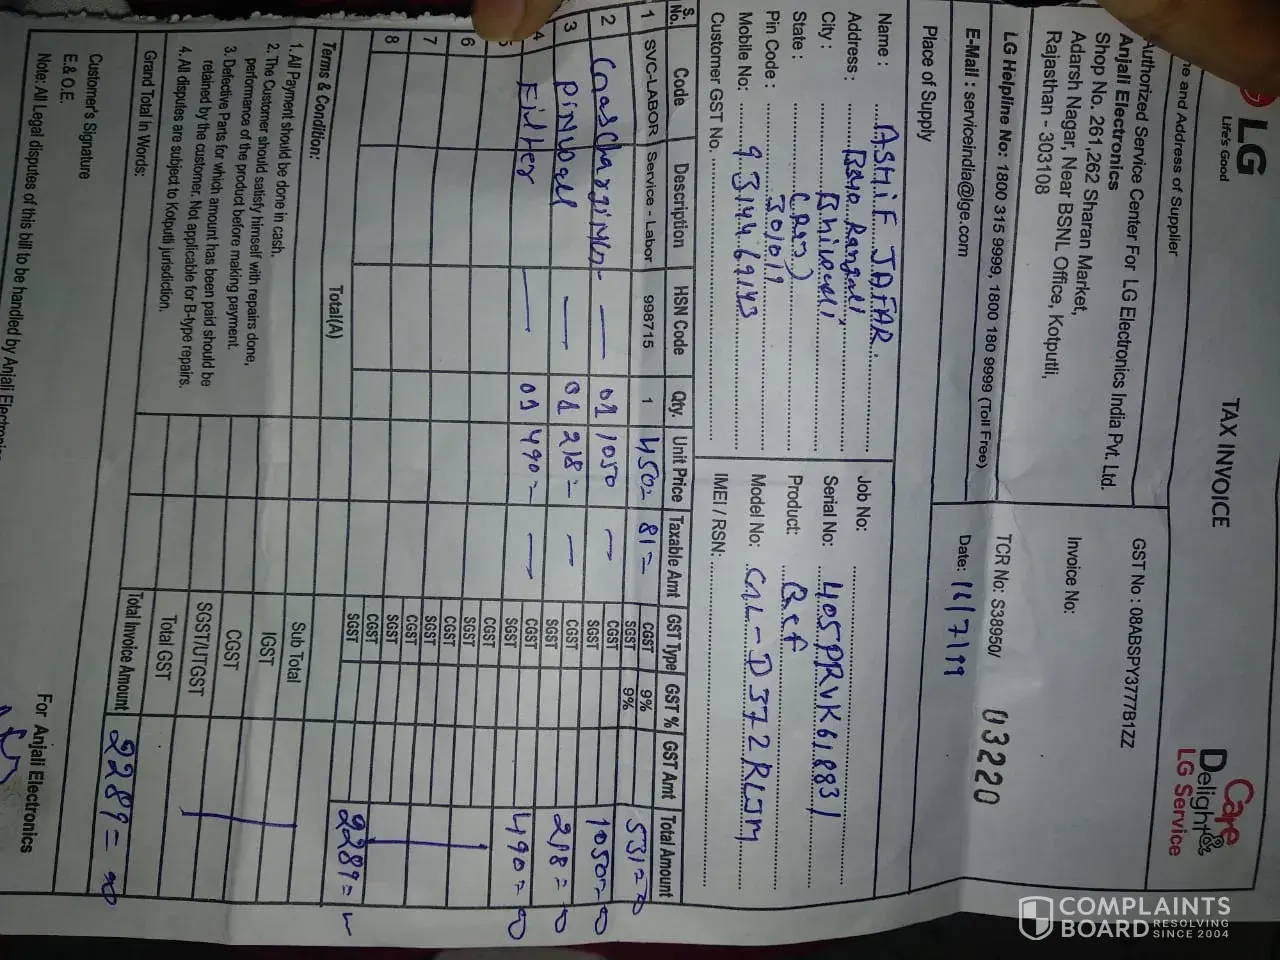 LG
Life's Good
TAX INVOICE
Care
Delight
LG Service
me and Address of Supplier
Authorized Service Center For LG Electronics India Pvt. Ltd.
Anjali Electronics
Shop No. 261,262 Sharan Market,
Adarsh Nagar, Near BSNL Office, Kotputli,
Rajasthan - 303108
GST No : 08ABSPY3777B1ZZ
Invoice No:
LG Helpline No: 1800 315 9999, 1800 180 9999 (Toll Free)
E-Mail : serviceindia@lge.com
TCR No: S38950/ 03220
Date: 16/7/19
Place of Supply
Name : ASHiF JAFAR.
Address :
City : Bhiwadi
State : (Raj)
Pin Code : 301019
Mobile No: 9314469143
Customer GST No.
Job No:
Serial No: 405PRVK61883/
Product: Ref
Model No: GL-D372RLJM
IMEI / RSN:
S. No. Code Description HSN Code Qty. Unit Price Taxable Amt GST Type GST % GST Amt Total Amount
1 SVC-LABOR Service - Labor 998715 1 450= 81= CGST 9% SGST 9% 531=00
2 Gas Charging — 01 1050 — CGST SGST 1050=00
3 — 01 218= — CGST SGST 218=00
4 Filter — 01 490= — CGST SGST 490=00
5 CGST SGST
6 CGST SGST
7 CGST SGST
8 CGST SGST
Total(A) 2289=
Terms & Condition:
1. All Payment should be done in cash.
2. The Customer should satisfy himself with repairs done,
performance of the product before making payment.
3. Defective Parts for which amount has been paid should be
retained by the customer. Not applicable for B-type repairs.
4. All disputes are subject to Kotputli jurisdiction.
Sub Total
IGST
CGST
SGST/UTGST
Total GST
Grand Total In Words:
Total Invoice Amount 2289=00
Customer's Signature
E.& O.E.
Note: All Legal disputes of this bill to be handled by Anjali Electronics
For Anjali Electronics
COMPLAINTS
BOARD RESOLVING
SINCE 2004